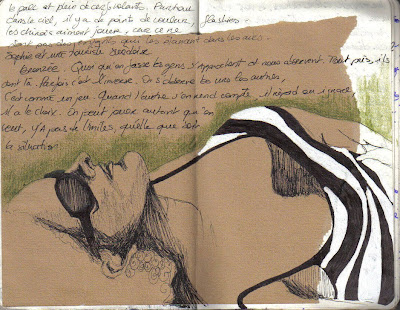 le parc est plein de cerfs volants. Partout
dans le ciel, il y a de points de couleur, flashies.
les chinois aiment jouer, car ce ne
sont pas des qui les élancent dans les airs.
Sophie et une touriste
bronzée. Quoi qu'on fasse les gens s'approchent et nous observent. Tout près, ils
sont là. Parfois c'est l'inverse. On s'observe les uns les autres,
C'est comme un jeu. Quand l'autre s'en rend compte, il répond en
il a le choix. On peut jouer autant qu'on
veut, y'a pas de limites, quelle que soit
la situation